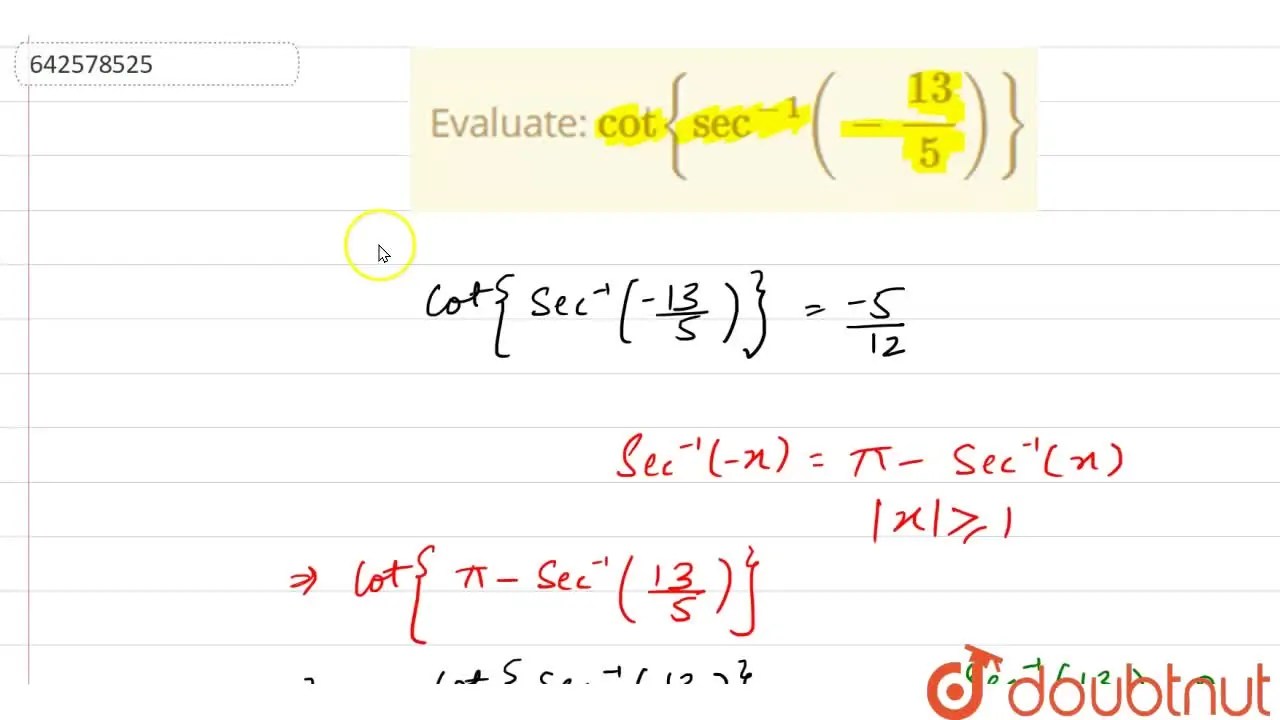 642578525
Evaluate: cot{sec⁻¹(−13/5)}
Cot{Sec⁻¹(-13/5)} = -5/12
Sec⁻¹(-x) = π - Sec⁻¹(x)
|x| ≥ 1
⇒ Cot{π - Sec⁻¹(13/5)}
doubtnut